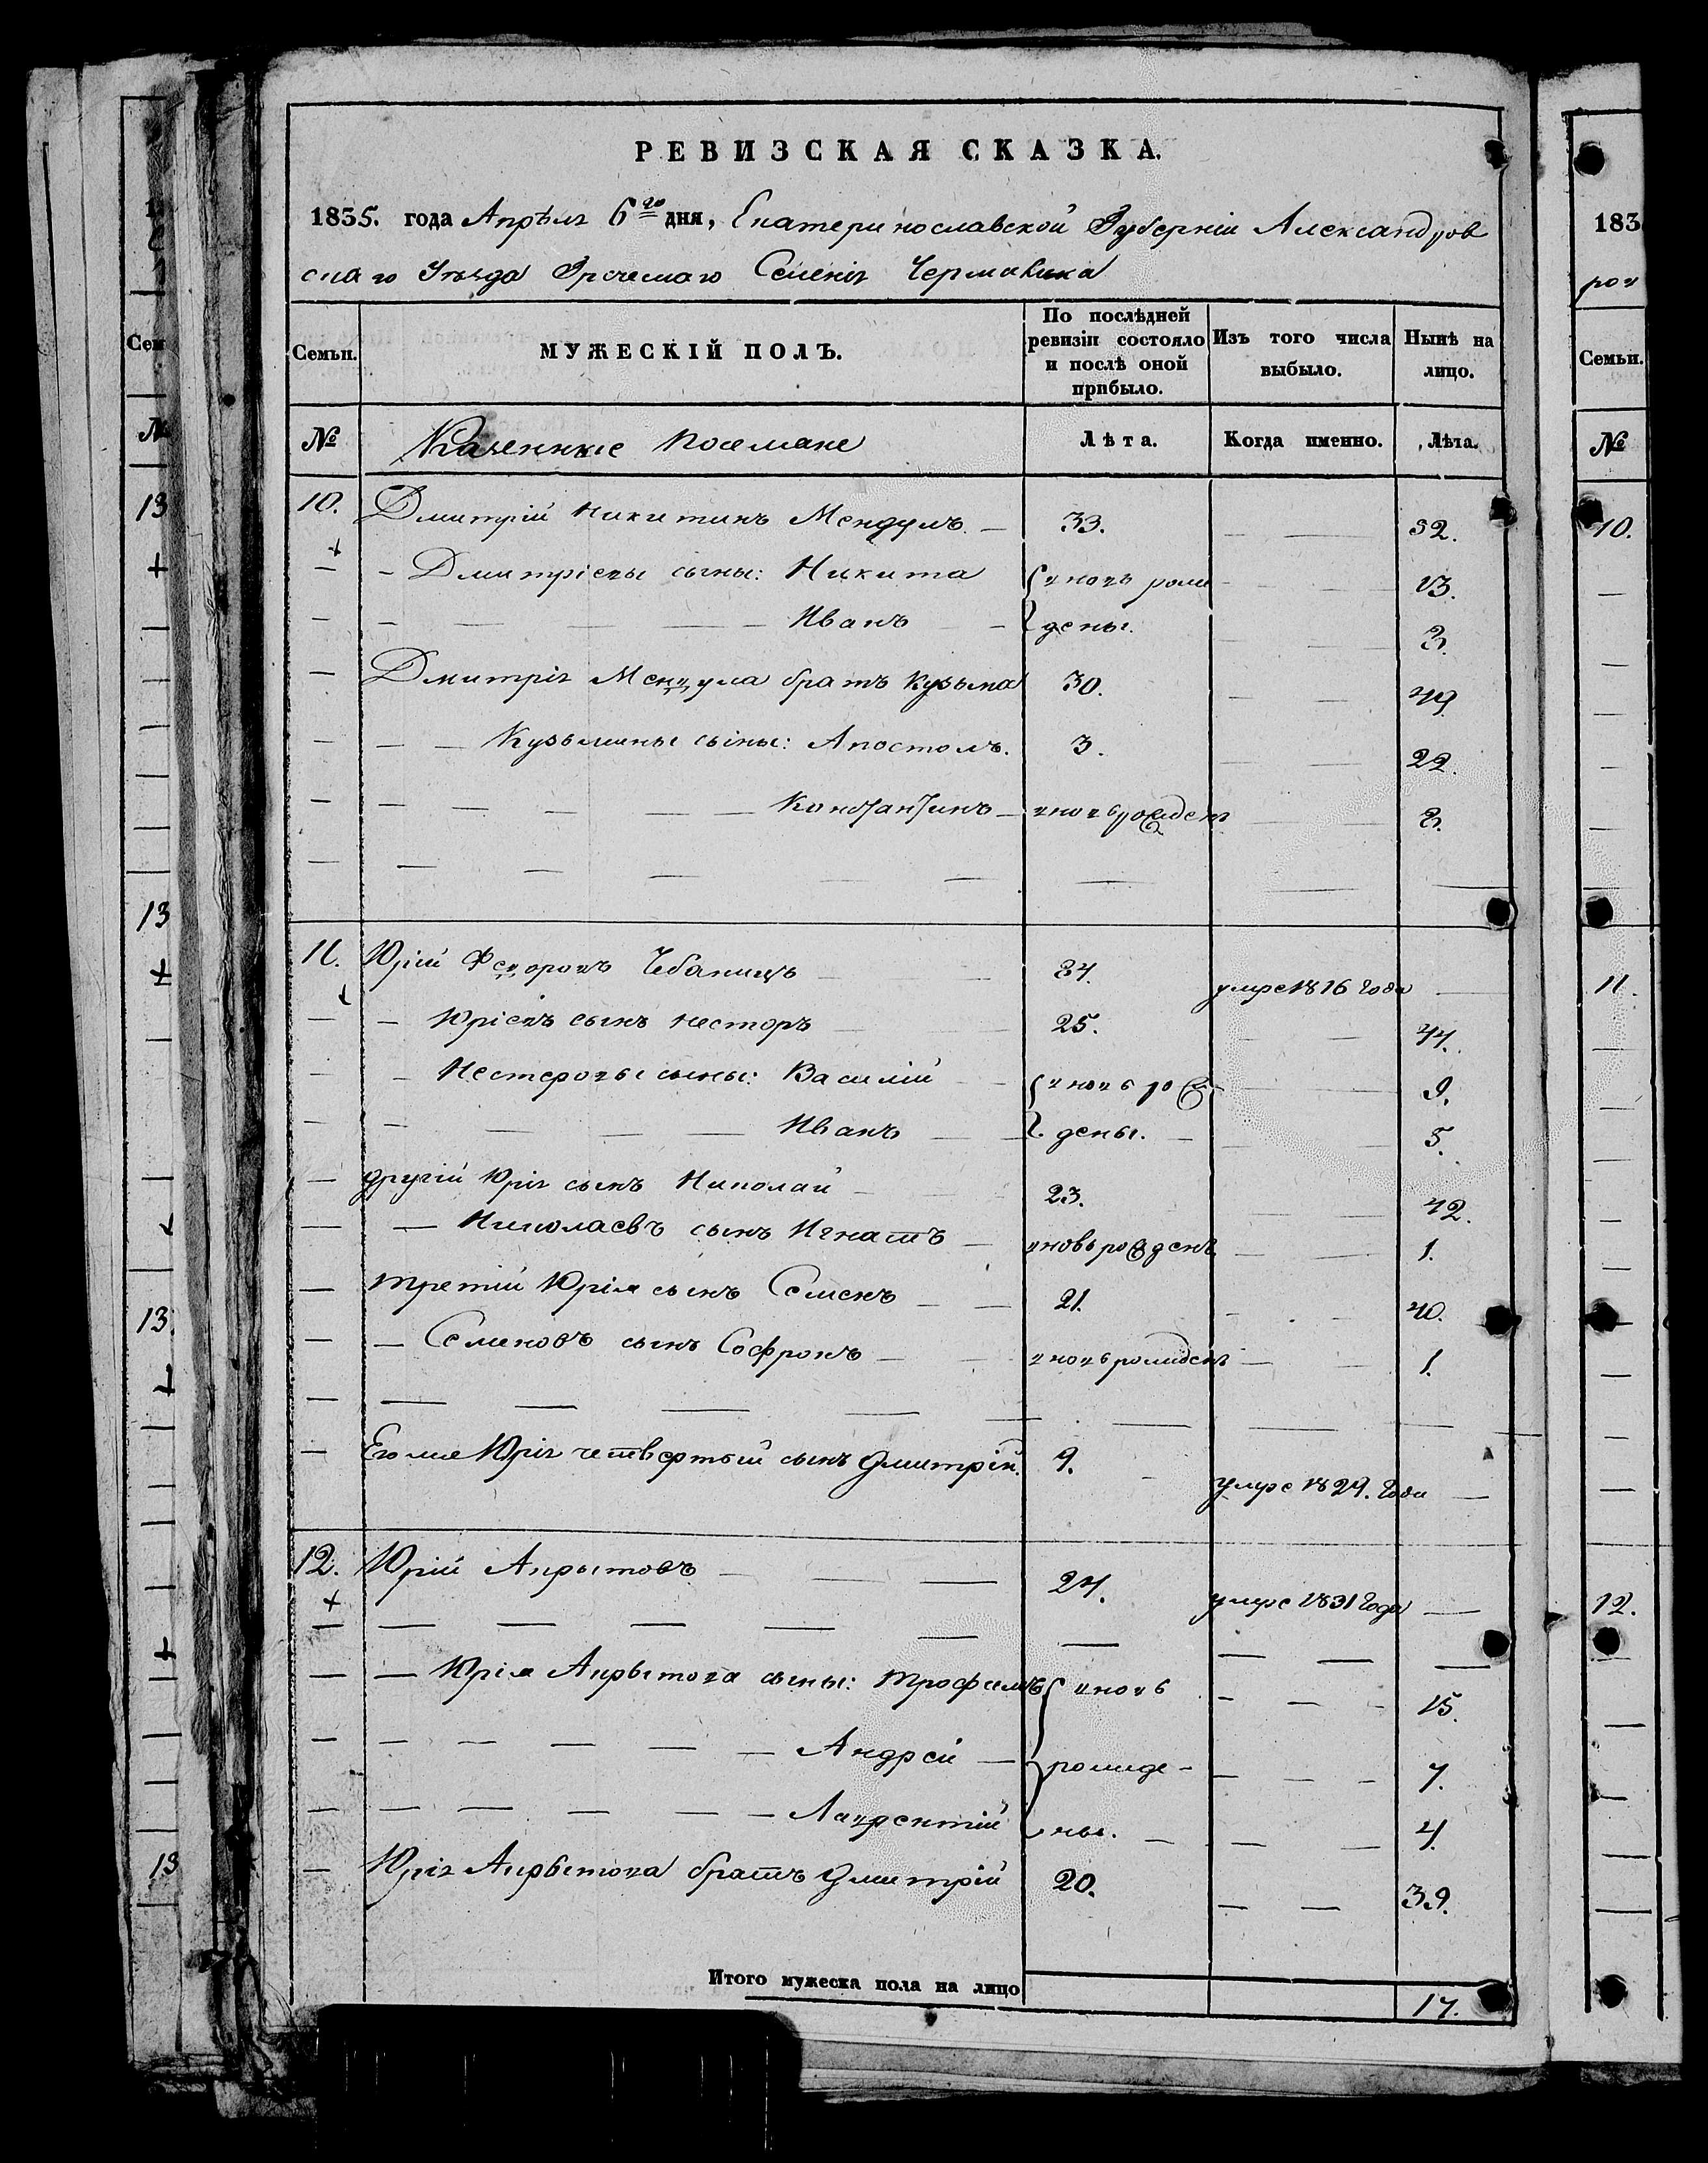 РЕВИЗСКАЯ СКАЗКА.
1835. года Апрѣля 6го дня, Екатеринославской Губерніи Александров
скаго Уѣзда Греческаго Селенія Чермалика
Семьи. МУЖЕСКІЙ ПОЛЪ. По послѣдней ревизіи состояло и послѣ оной прибыло. Изъ того числа выбыло. Нынѣ на лицо.
№ Казенные Поселяне Лѣта. Когда именно. Лѣта.
10. Дмитрій Никитинъ Мендулъ 33. 52.
Дмитріевы сыны: Никита вновь рож 13.
Иванъ дены. 3.
Дмитрія Мендула братъ Кузьма 30. 49.
Кузьмины сыны: Апостолъ. 3. 22.
Константинъ вновь рожденъ 3.
11. Юрій Федоровъ Чебаницъ 84. умре 1816 года
Юріевъ сынъ Несторъ 25. 44.
Нестеровы сыны: Василій вновь рож 9.
Иванъ дены. 5.
другій Юрія сынъ Николай 23. 42.
Николаевъ сынъ Игнатъ вновь рожденъ 1.
третій Юрія сынъ Семенъ 21. 40.
Семеновъ сынъ Софронъ вновь рожденъ 1.
Его же Юрія четвертый сынъ Дмитрій. 9. умре 1829. года
12. Юрій Акрытовъ 24. умре 1831 года
Юрія Акрытова сыны: Трофимъ вновь 15.
Андрей рожде- 7.
Лаврентій ны. 4.
Юрія Акрытова братъ Дмитрій 20. 39.
Итого мужеска пола на лицо 17.
183
Семьи.
№
10.
11.
12.
13
13
13.
13